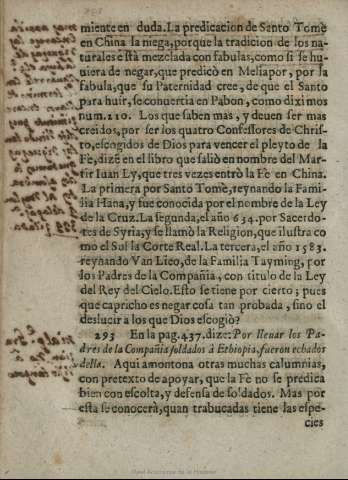 miente en duda. La predicacion de Santo Tomè
en China la niega, porque la tradicion de los na-
turales està mezclada con fabulas, como si se hu-
uiera de negar, que predicò en Meliapor, por la
fabula, que su Paternidad cree, de que el Santo
para huir, se conuertia en Pabon, como diximos
num. 210. Los que saben mas, y deuen ser mas
creidos, por ser los quatro Confessores de Chris-
to, escogidos de Dios para vencer el pleyto de la
Fè, dizẽ en el libro que saliò en nombre del Mar-
tir Iuan Ly, que tres vezes entrò la Fè en China.
La primera por Santo Tomè, reynando la Fami-
lia Hana, y fue conocida por el nombre de la Ley
de la Cruz. La segunda, el año 634. por Sacerdo-
tes de Syria, y se llamò la Religion, que ilustra co
mo el Sol la Corte Real. La tercera, el año 1583.
reynando Van Lieo, de la Familia Tayming, por
los Padres de la Compañia, con titulo de la Ley
del Rey del Cielo. Esto se tiene por cierto; pues
que capricho es negar cosa tan probada, sino el
deslucir a los que Dios escogiò?
293 En la pag. 437. dize: Por lleuar los Pa-
dres de la Compañia soldados à Ethiopia, fueron echados
della. Aqui amontona otras muchas calumnias,
con pretexto de apoyar, que la Fè no se predica
bien con escolta, y defensa de soldados. Mas por
esta se conocerà, quan trabucadas tiene las espe-
cies